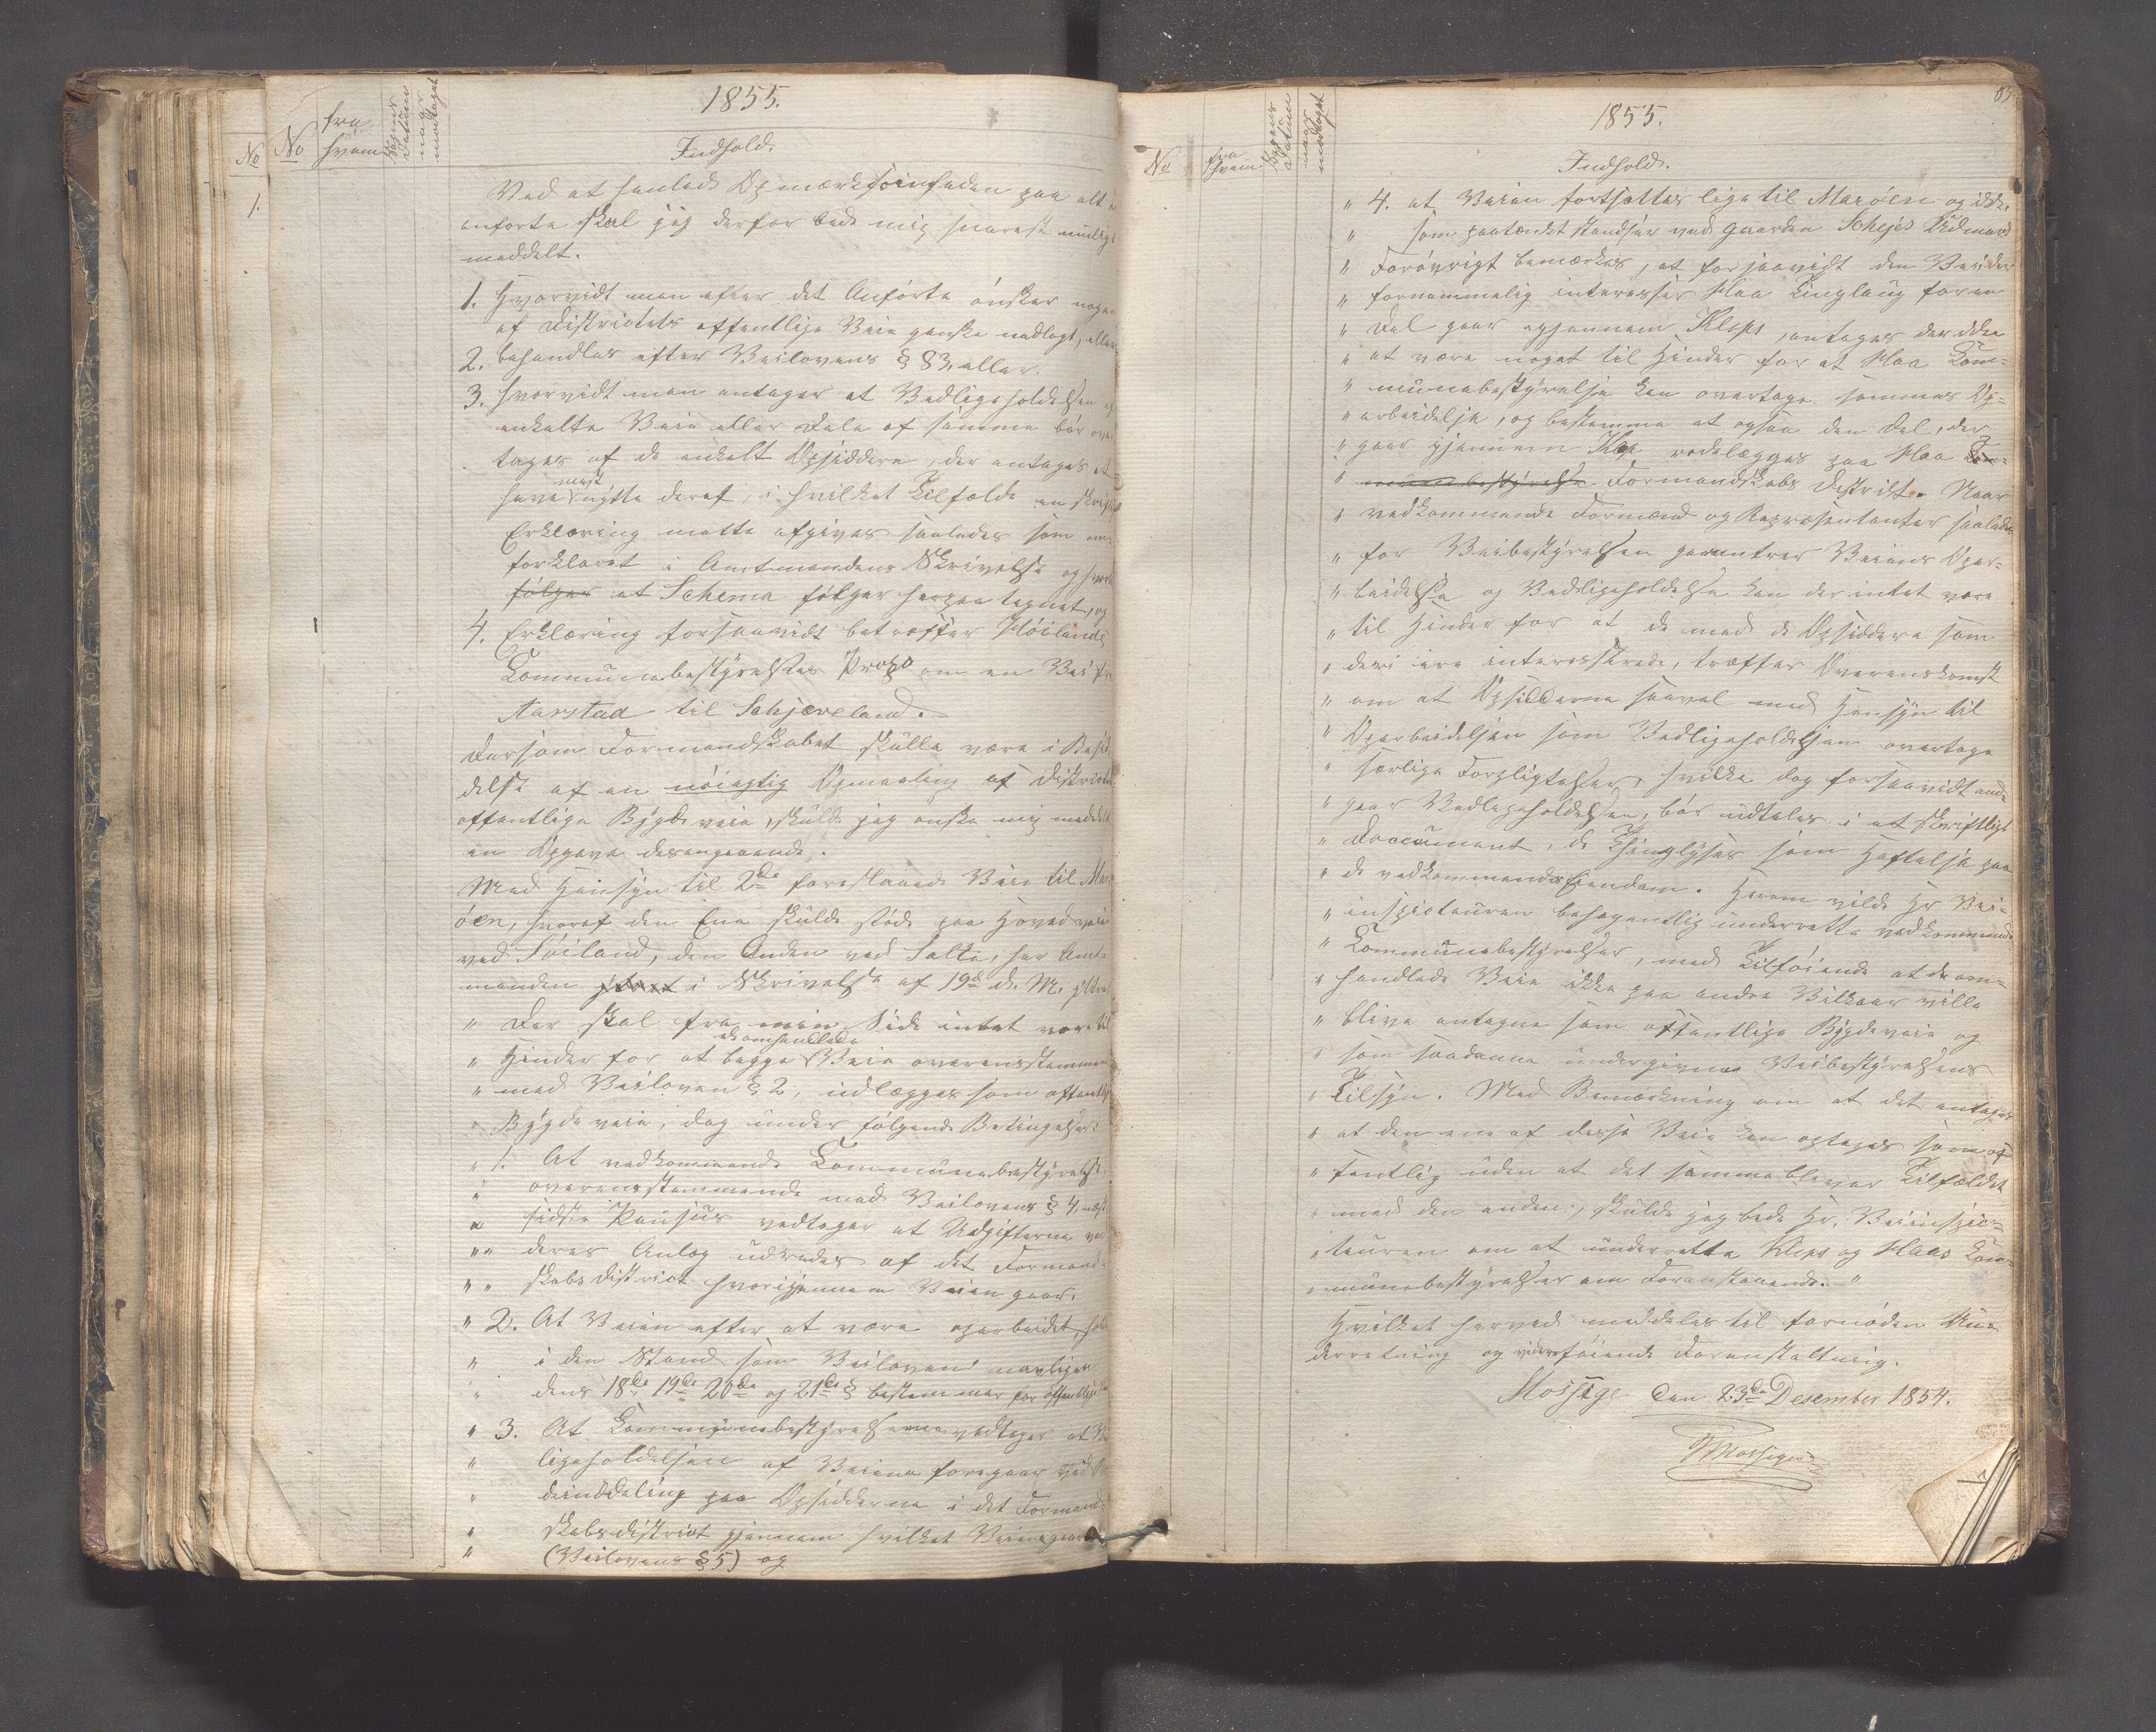 1855.
No
No
fra
hvem
Sagens
Datum
naar
modtaget
Indhold.
1.
Ved at henlede Opmærksomheden paa alt
anførte skal jeg derfor bede mig snarest muligt
meddelt.
1. Hvorvidt man efter det Anførte ønsker nogen
af Districtets offentlige Veie ganske nedlagt, eller
2. behandles efter Veilovens § 83, eller.
3. hvorvidt man antager at Vedligeholdelsen af
enkelte Veie eller Dele af samme bør over
tages af de enkelt Opsiddere, der antages at
have mest nytte deraf, i hvilket Tilfælde en skriftlig
Erklæring maatte afgives saaledes som om-
forklaret i Amtmandens Skrivelse og hvor
følger et Schema følger herpaa tegnet, og
4. Erklæring forsaavidt betræffer Høilands
Communebestyrelses Prop° om en Vei fra
Aarstad til Schjæveland.
Dersom Formandskabet skulle være i Besid
delse af en nøiagtig Opmaaling af Districtets
offentlige Bygdeveie, skulde jeg ønske mig meddelt
en Opgave desangaaende.
Med Hensyn til 2de foreslaaede Veie til Mar
öen, hvoraf den Ene skulde støde paa Hovedveien
ved Söiland, den Anden ved Salte, har Amt-
manden i Skrivelse af 19de d. M. yttret
" Der skal fra min Side intet være til
" Hinder for at begge de omhandlede Veie overensstemmende
" med Veiloven § 2, udlægges som offentlige
" Bygdeveie, dog under følgende Betingelser:
" 1. At vedkommende Communebestyrelse
" overensstemmende med Veilovens § 4, næst
" sidste Passus vedtager at Udgifterne ved
" " deres Anlæg udredes af det Formand-
" " skabsdistrict hvorigjennem Veien gaar.
" 2. At Veien efter at være oparbeidet, holdes
" i den Stand som Veiloven navnligen
" dens 18de 19de 20de og 21de § bestemmer for offentlige
" 3. At Communebestyrelserne vedtager at Ved
" ligeholdelsen af Veiene foregaar ved
" deinddeling paa Opsidderne i det Formand-
" skabsdistrict gjennem hvilket Veiene gaar
" (Veilovens § 5) og
1855.
No
fra
hvem
Sagens
Datum
naar
modtaget
Indhold.
" 4. at Veien fortsættes lige til Maröen og ikke,
" som paatænkt standser ved Gaarden Schejes Udmark
" Forøvrigt bemærkes, at forsaavidt den Vei der
" fornemmelig interesser Haa Tinglaug for en
" Del gaar igjennem Kleps, antages der ikke
" at være noget til Hinder for at Haa Com-
" munebestyrelse kan overtage sammes Op-
" arbeidelse, og bestemme at ogsaa den Del, der
" gaar gjennem Klep rodelægges paa Haa Com-
" munebestyrelse Formandskabs District. Naar
" vedkommende Formænd og Repræsentanter saaledes
" for Veibestyrelsen garantrer Veiens Opar-
" beidelse og Vedligeholdelse kan der intet være
" til Hinder for at de med de Opsiddere som
" deri ere interesserede, træffer Overenskomst
" om at Opsidderne saavel med Hensyn til
" Oparbeidelsen som Vedligeholdelsen overtage
" særlige Forpligtelser, hvilke dog forsaavidt and-
" gaar Vedligeholdelsen, bør udtales i et skriftligt
" Document, der thinglyses som Heftelse paa
" de vedkommendes Eiendom. Herom vilde Hr Vei-
" inspecteuren behagentlig underrette vedkommende
" Communebestyrelser, med Tilføiende at de om-
" handlede Veie ikke paa andre Vilkaar ville
" blive antagne som offentlige Bygdeveie og
" som saadanne undergivne Veibestyrelsens
" Tilsyn. Med Bemærkning om at det antages
" at den ene af disse Veie kan optages som of
" fentlig uden at det samme bliver Tilfældet
" med den anden, skulde jeg bede Hr. Veiinspec-
" teuren om at underrette Kleps og Haas Com-
" munebestyrelser om Foranstaaende."
Hvilket herved meddeles til fornøden Un-
derretning og videre føiende Foranstaltning.
Mossige den 23de Desember 1854.
Mossige